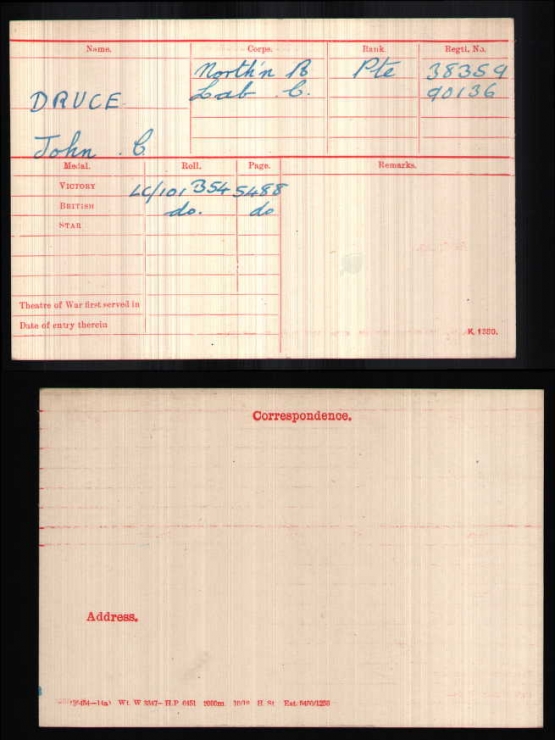 Name. Corps. Rank. Regtl. No.
North'n R Pte 38359
DRUCE Lab C. 90136
John C.
Medal. Roll. Page. Remarks.
VICTORY LC/101 B54 5488
BRITISH do. do
STAR
Theatre of War first served in
Date of entry therein
K. 1380.
Correspondence.
Address.
Wt. W 3347— H.P. 10/18 H. St